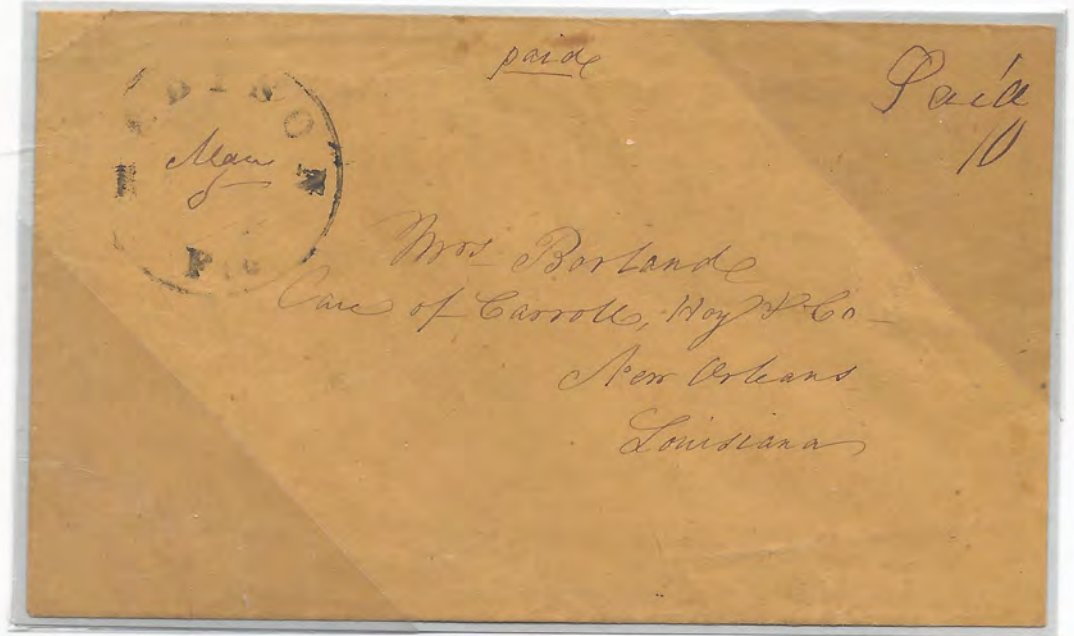 paid
Paid
10
MADISON
Mrs Borland
Care of Carroll, Hoy & Co -
New Orleans
Louisiana